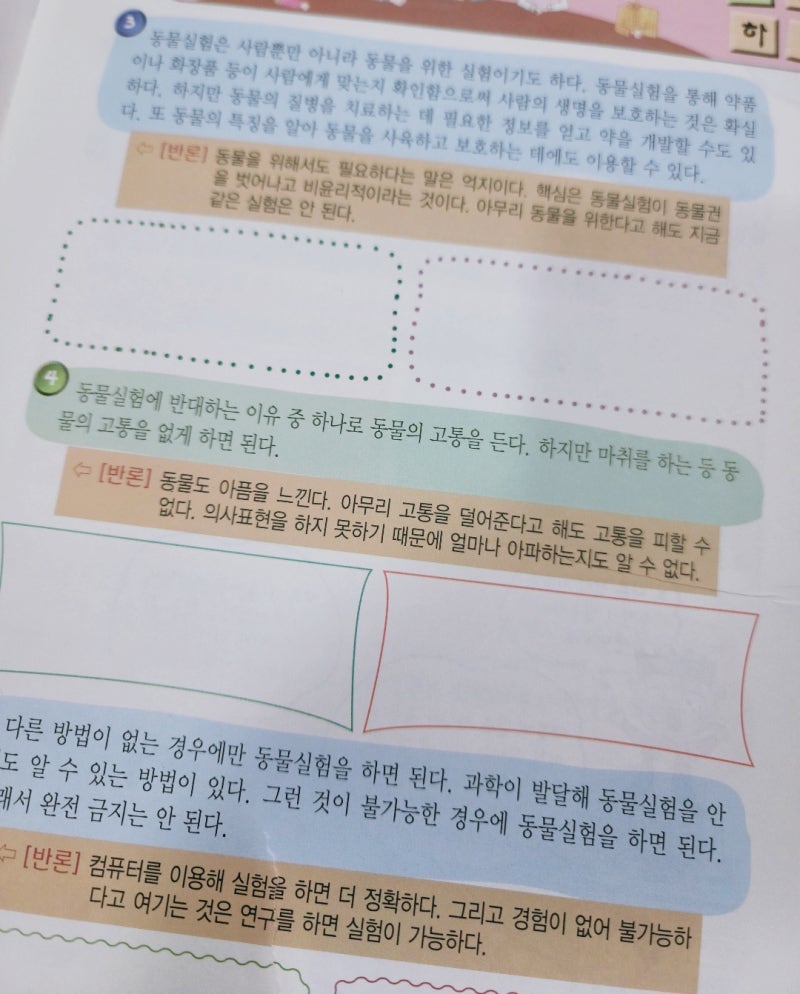 하
3
동물실험은 사람뿐만 아니라 동물을 위한 실험이기도 하다. 동물실험을 통해 약품
이나 화장품 등이 사람에게 맞는지 확인함으로써 사람의 생명을 보호하는 것은 확실
하다. 하지만 동물의 질병을 치료하는 데 필요한 정보를 얻고 약을 개발할 수도 있
다. 또 동물의 특징을 알아 동물을 사육하고 보호하는 데에도 이용할 수 있다.
⇦ [반론] 동물을 위해서도 필요하다는 말은 억지이다. 핵심은 동물실험이 동물권
을 벗어나고 비윤리적이라는 것이다. 아무리 동물을 위한다고 해도 지금
같은 실험은 안 된다.
4
동물실험에 반대하는 이유 중 하나로 동물의 고통을 든다. 하지만 마취를 하는 등 동
물의 고통을 없게 하면 된다.
⇦ [반론] 동물도 아픔을 느낀다. 아무리 고통을 덜어준다고 해도 고통을 피할 수
없다. 의사표현을 하지 못하기 때문에 얼마나 아파하는지도 알 수 없다.
다른 방법이 없는 경우에만 동물실험을 하면 된다. 과학이 발달해 동물실험을 안
도 알 수 있는 방법이 있다. 그런 것이 불가능한 경우에 동물실험을 하면 된다.
래서 완전 금지는 안 된다.
⇦ [반론] 컴퓨터를 이용해 실험을 하면 더 정확하다. 그리고 경험이 없어 불가능하
다고 여기는 것은 연구를 하면 실험이 가능하다.